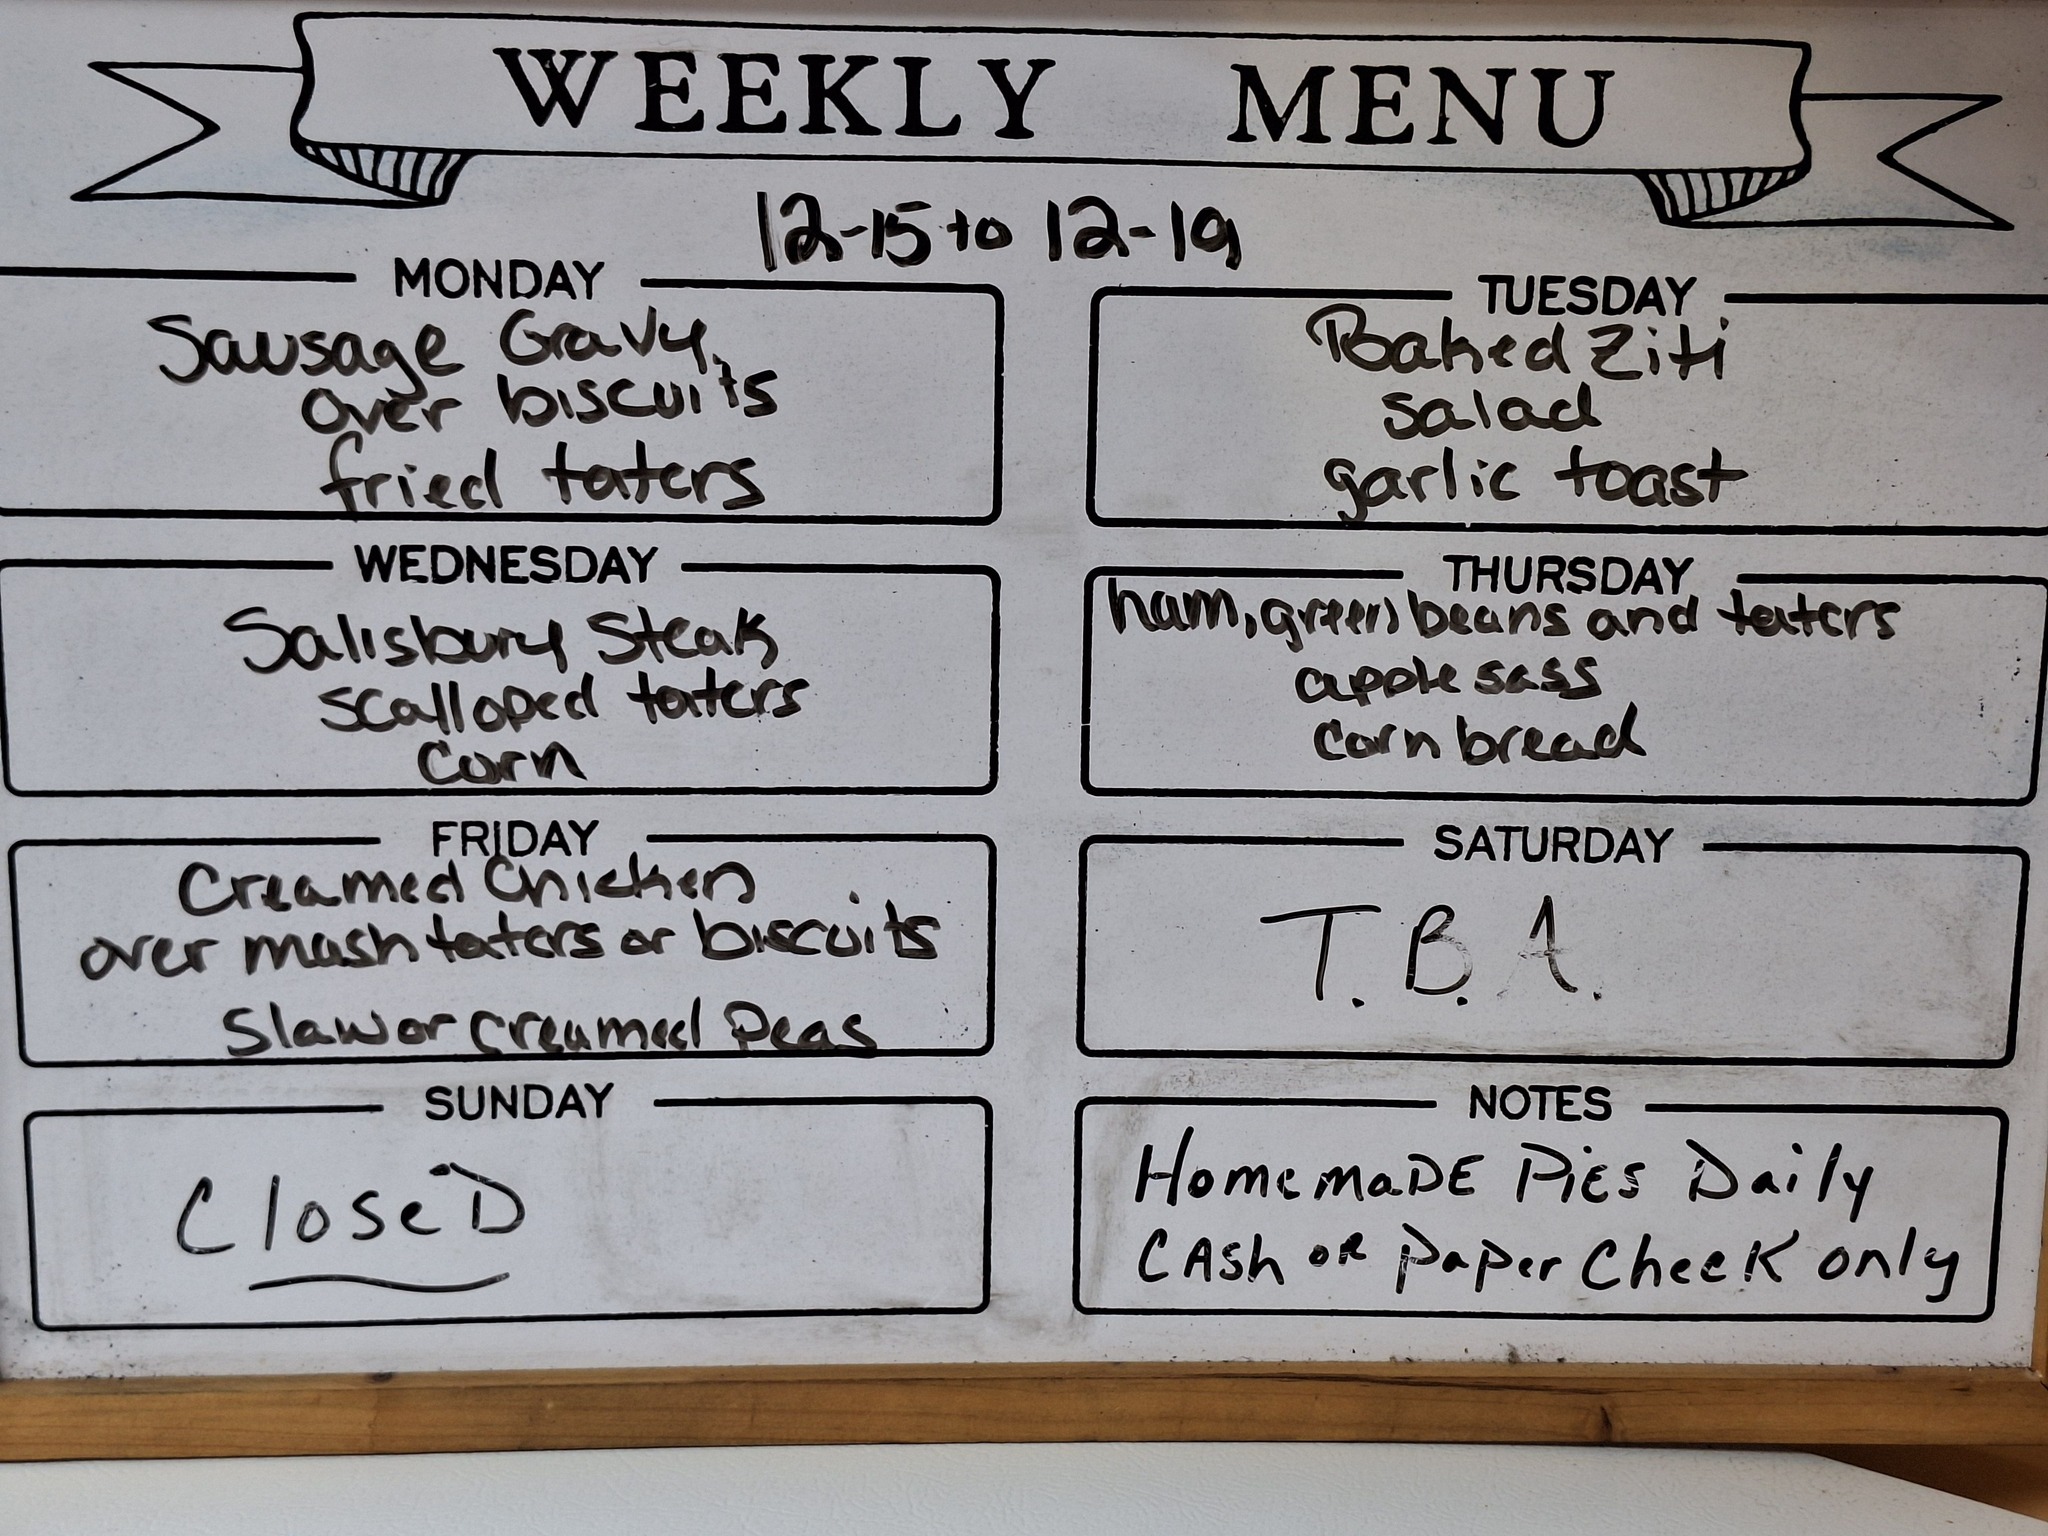 WEEKLY MENU
12-15 to 12-19
MONDAY
Sausage Gravy,
over biscuits
fried taters
TUESDAY
Baked Ziti
salad
garlic toast
WEDNESDAY
Salisbury Steak
scalloped taters
corn
THURSDAY
ham, green beans and taters
apple sass
corn bread
FRIDAY
Creamed Chicken
over mash taters or biscuits
Slaw or creamed peas
SATURDAY
T.B.A.
SUNDAY
CloseD
NOTES
HomemaDE PiEs Daily
CAsh oR PaPer CheeK only